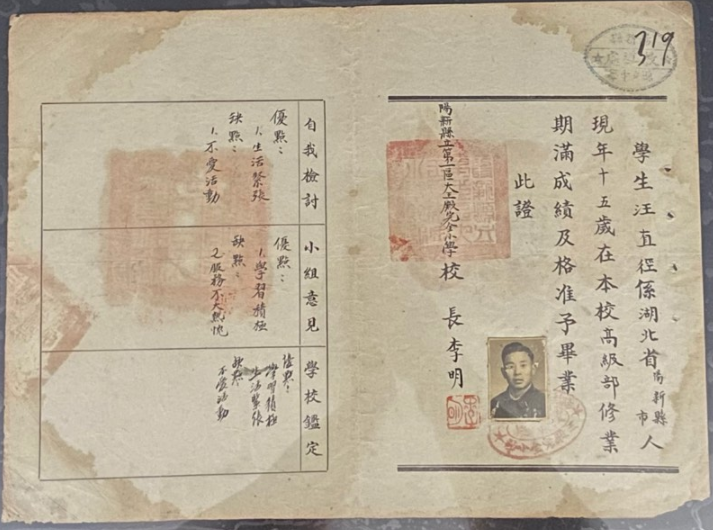 319
學生汪直徑係湖北省陽新縣市人
現年十五歲在本校高級部修業
期滿成績及格准予畢業
此證
陽新縣立第一區大王殿完全小學校長李明
自我檢討
優點：
1.生活緊張
缺點：
1.不愛活動
小組意見
優點：
1.學習積極
缺點：
2.服務不大熱忱
學校鑑定
優點：
學習積極
生活緊張
缺點：
不愛活動